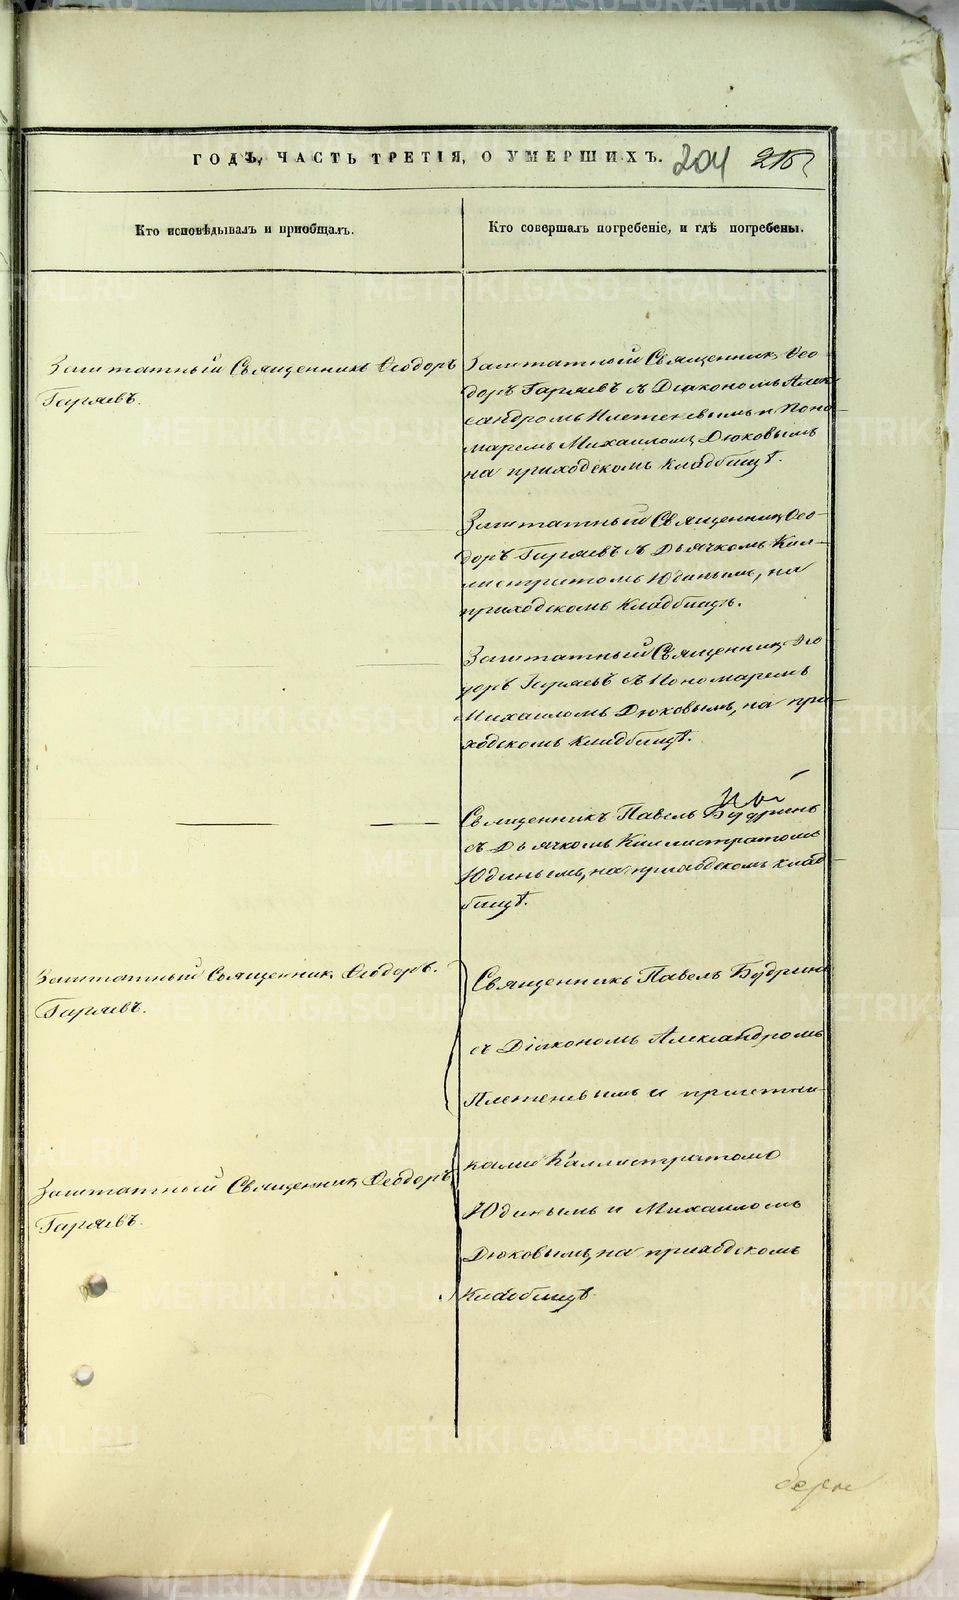 ГОДЪ, ЧАСТЬ ТРЕТІЯ, О УМЕРШИХЪ. 204 216
Кто исповѣдывалъ и приобщалъ.
Кто совершалъ погребеніе, и гдѣ погребены.
Заштатный Священникъ Ѳеодоръ
Гаряевъ.
Заштатный Священникъ Ѳео-
доръ Гаряевъ съ Діакономъ Алек-
сандромъ Плетеневымъ и Поно-
маремъ Михаиломъ Дюковымъ
на приходскомъ кладбищѣ.
Заштатный Священникъ Ѳео-
доръ Гаряевъ съ Дьячкомъ Кал-
листратомъ Юдинымъ, на
приходскомъ кладбищѣ.
Заштатный Священникъ Ѳео-
доръ Гаряевъ съ Пономаремъ
Михаиломъ Дюковымъ, на при-
ходскомъ кладбищѣ.
Священникъ Павелъ Будринъ
съ Дьячкомъ Каллистратомъ
Юдинымъ, на приходскомъ клад-
бищѣ.
Заштатный Священникъ Ѳеодоръ
Гаряевъ.
Заштатный Священникъ Ѳеодоръ
Гаряевъ.
Священникъ Павелъ Будринъ
съ Діакономъ Александромъ
Плетеневымъ и причетни-
ками Каллистратомъ
Юдинымъ и Михаиломъ
Дюковымъ, на приходскомъ
кладбищѣ.
METRIKI.GASO-URAL.RU